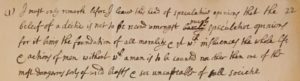 (1) I must only remark before I leave this head of speculative opinions that the 22
beleif of a deitie is not to be recond amongst purely speculative opinions
for it being the foundation of all morality & yt wch influences the whole life
& actions of men without wch a man is to be counted noe other then one of the
most dangerous sorts of wild beasts & soe uncapable of all societie